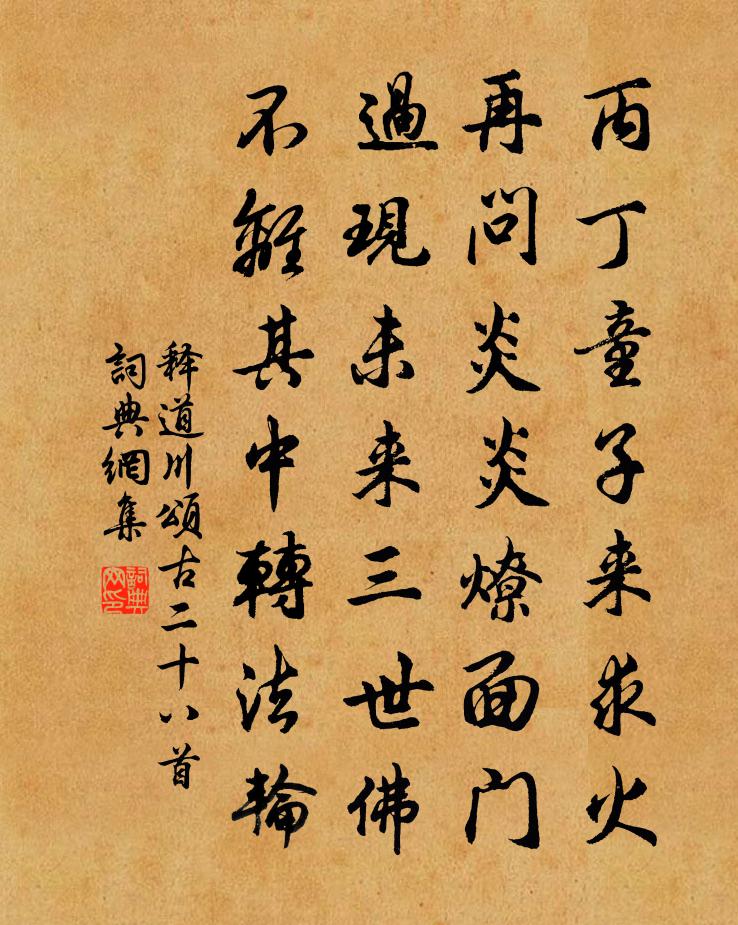 丙丁童子来求火
再問炎炎燎面门
過現未来三世佛
不離其中轉法輪
释道川頌古二十八首
詞典網集
詞典网印